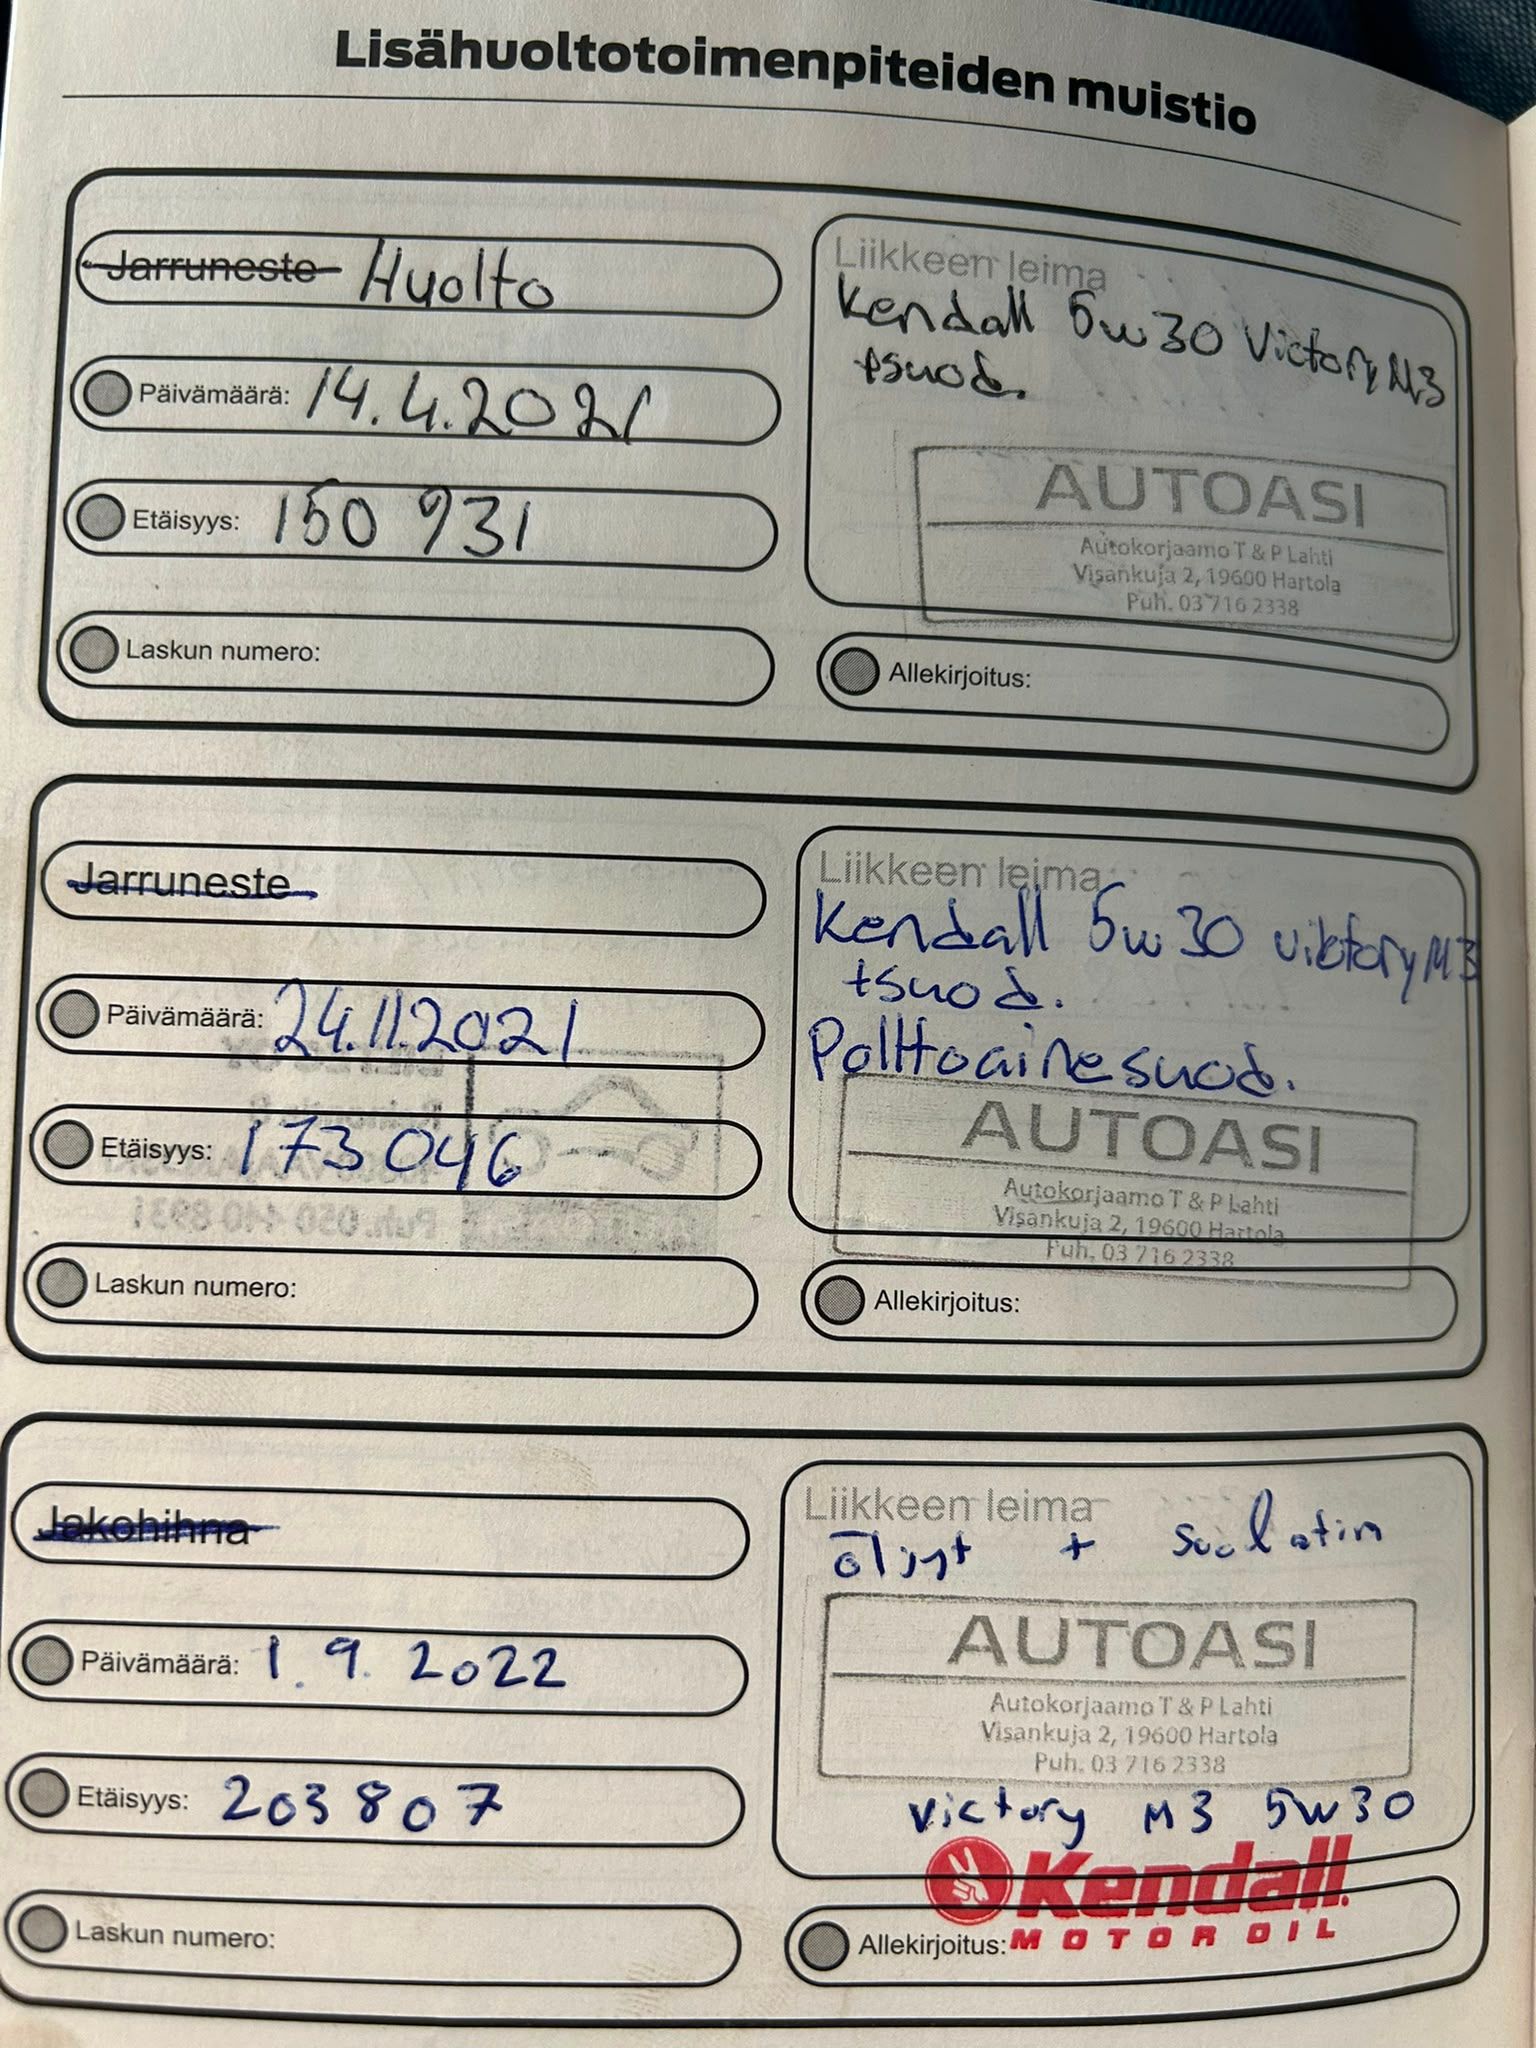 Lisähuoltotoimenpiteiden muistio
Jarruneste Huolto
Päivämäärä: 14.4.2021
Etäisyys: 150 931
Laskun numero:
Liikkeen leima
Kendall 5w30 Victory M3
+suod.
AUTOASI
Autokorjaamo T & P Lahti
Visankuja 2, 19600 Hartola
Puh. 03 716 2338
Allekirjoitus:
Jarruneste
Päivämäärä: 24.11.2021
Etäisyys: 173 046
Laskun numero:
Liikkeen leima
Kendall 5w30 viktory M3
+suod.
Polttoainesuod.
AUTOASI
Autokorjaamo T & P Lahti
Visankuja 2, 19600 Hartola
Puh. 03 716 2338
Allekirjoitus:
Jakohihna
Päivämäärä: 1.9.2022
Etäisyys: 203807
Laskun numero:
Liikkeen leima
öljyt +
AUTOASI
Autokorjaamo T & P Lahti
Visankuja 2, 19600 Hartola
Puh. 03 716 2338
victory M3 5w30
Kendall
MOTOR OIL
Allekirjoitus: